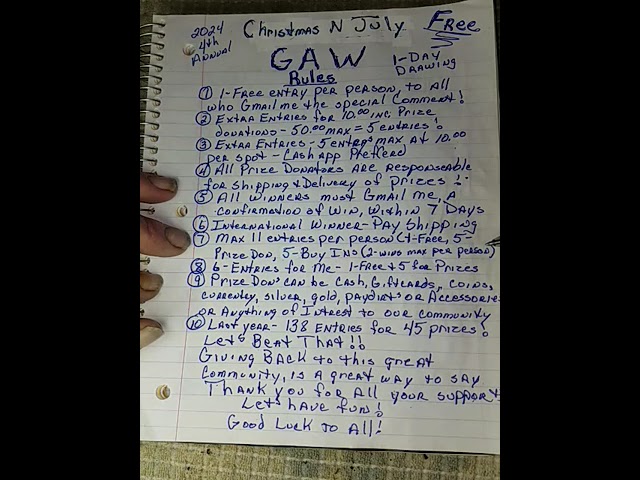 2024
4th
Annual
Christmas N July
Free
GAW
Rules
1-Day
Drawing
① 1-Free entry per person, to all
who Gmail me the special Comment!
② Extra Entries for 10.00 inc. Prize
donations - 50.00 max = 5 entries!
③ Extra Entries - 5 entrys max at 10.00
per spot - Cash app Preferd
④ All Prize Donators are responseable
for shipping & Delivery of prizes!
⑤ All winners must Gmail me, a
confirmation of win, within 7 Days
⑥ International Winner-Pay Shipping
⑦ Max 11 entries per person (1-Free, 5-
Prize Don, 5-Buy Ins (2-wins max per person)
⑧ 6-Entries for me - 1-Free & 5 for Prizes
⑨ Prize Don's can be Cash, Giftcards, coins,
currency, silver, gold, paydirt's or Accessories
or Anything of Interest to our community
⑩ Last year - 138 Entries for 45 prizes!
Let's Beat That!!
Giving Back to this great
Community, is a great way to say
Thank you for all your support
Let's have fun!
Good Luck To All!